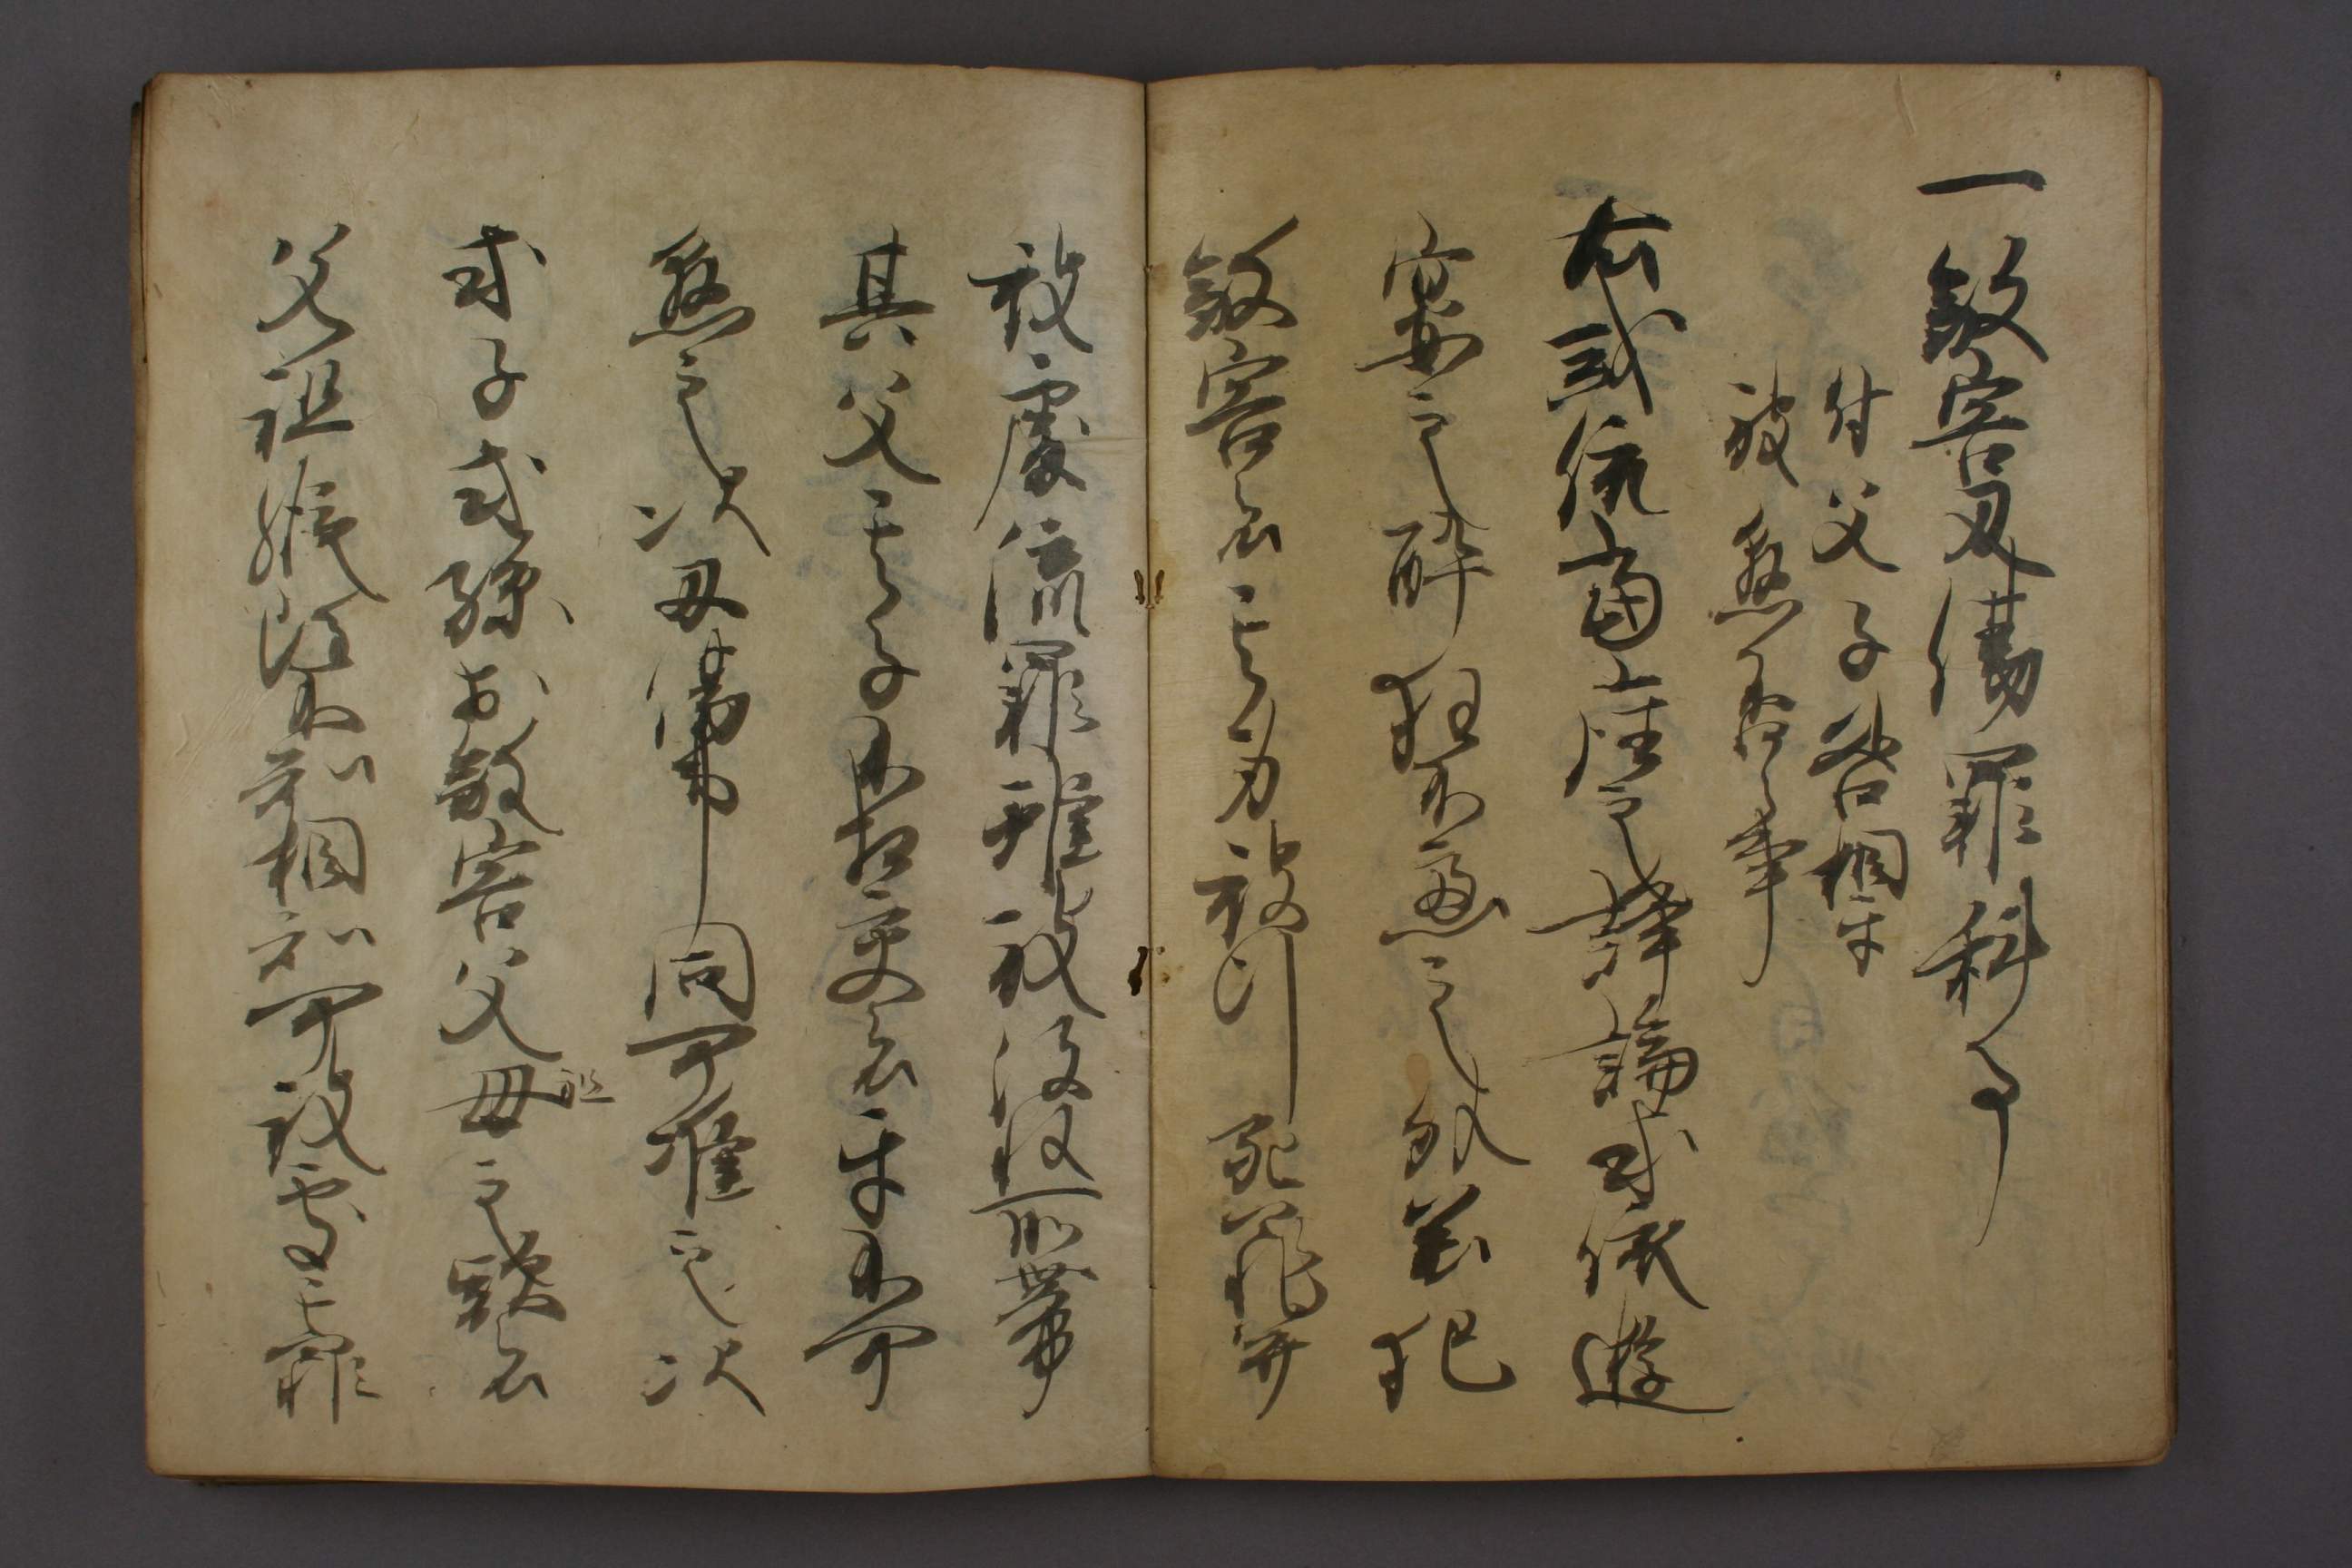 一殺害刃傷罪科事
付父子咎相互
被懸否事
右或依当座之諍論或依遊
宴之酔狂不慮之外若犯
殺害者其身被行死罪并
被処流罪雖被没収所帯
其父其子不相交者互不可
懸之次刃傷事同可准之次
或子或孫於殺害父母之敵者
祖
父祖縦雖不知相知可被処其罪